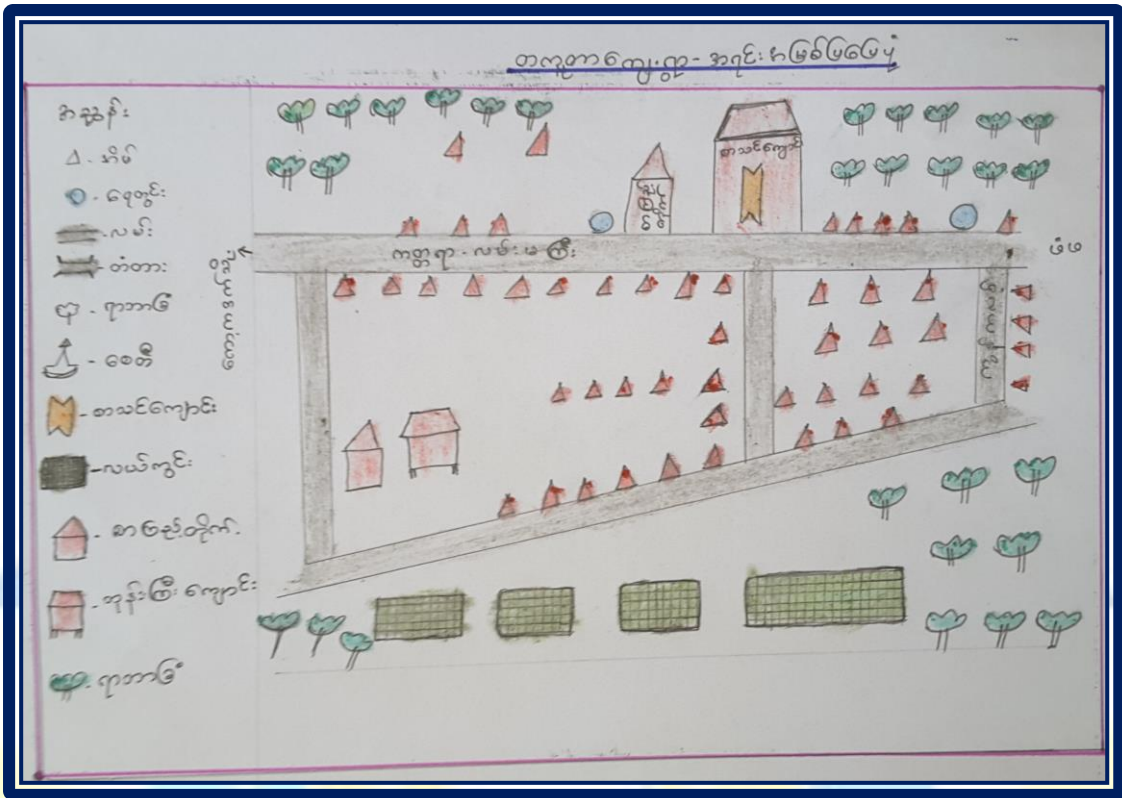 တကူတာကျေးရွာ - အရင်းအမြစ်ပြမြေပုံ
အညွှန်း
- အိမ်
- ရေတွင်း
- လမ်း
- တံတား
- ရာဘာခြံ
- စေတီ
- စာသင်ကျောင်း
- လယ်ကွင်း
- စာကြည့်တိုက်
- ဘုန်းကြီးကျောင်း
- ရာဘာခြံ
စာသင်ကျောင်း
ကတ္တရာ - လမ်းမကြီး